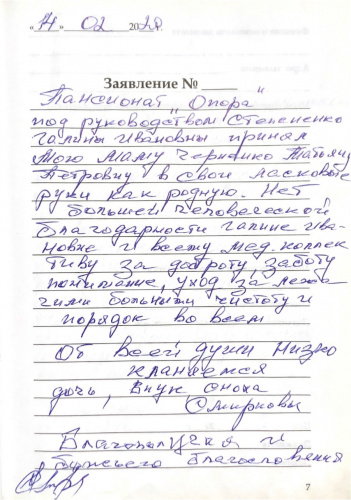 „14“ 02 2020г.
Заявление №
Пансионат „Опора“
под руководством Степаненко
Галины Ивановны принял
Мою маму Черненко Татьяну
Петровну в свои ласковые
руки как родную. Нет
большей человеческой
благодарности Галине Ива-
новне и всему мед. коллек
тиву за доброту, заботу
понимание, уход за лежа-
чими больными чистоту и
порядок во всем
От всей души низко
кланяемся
дочь, внук сноха
Смирновы
Благополучия и
божьего благословения
7